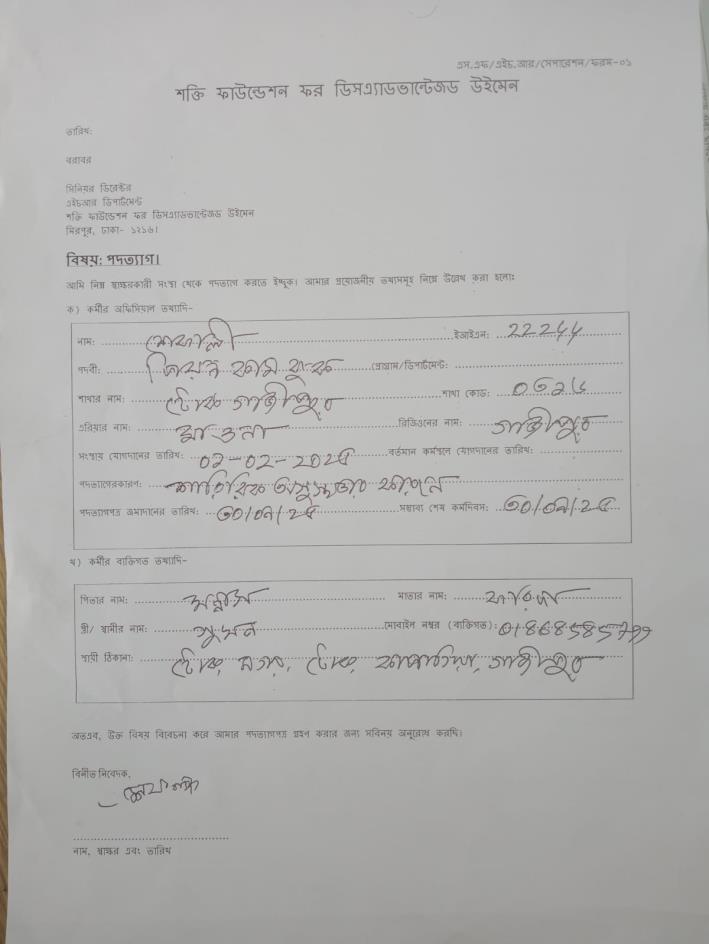 এস.এফ/এইচ.আর/সেপারেশন/ফরম-০১
শক্তি ফাউন্ডেশন ফর ডিসএ্যাডভান্টেজড উইমেন
তারিখ:
বরাবর
সিনিয়র ডিরেক্টর
এইচআর ডিপার্টমেন্ট
শক্তি ফাউন্ডেশন ফর ডিসএ্যাডভান্টেজড উইমেন
মিরপুর, ঢাকা- ১২১৬।
বিষয়: পদত্যাগ।
আমি নিম্ন স্বাক্ষরকারী সংস্থা থেকে পদত্যাগ করতে ইচ্ছুক। আমার প্রয়োজনীয় তথ্যসমূহ নিম্নে উল্লেখ করা হলো:
ক) কর্মীর অফিসিয়াল তথ্যাদি-
নাম: শেফালী ইআইএন: 22244
পদবী: প্রোগ্রাম/ডিপার্টমেন্ট:
শাখার নাম: টোক গাজীপুর শাখা কোড:
এরিয়ার নাম: মাওনা রিজিওনের নাম: গাজীপুর
সংস্থায় যোগদানের তারিখ: ০২-০২-2০2৫ বর্তমান কর্মস্থলে যোগদানের তারিখ:
পদত্যাগের কারণ: শারিরিক অসুস্থতার কারনে
পদত্যাগপত্র জমাদানের তারিখ: ৩০/০৯/২৫ সম্ভাব্য শেষ কর্মদিবস: ৩০/০৯/২৫
খ) কর্মীর ব্যক্তিগত তথ্যাদি-
পিতার নাম: মাতার নাম:
স্ত্রী/ স্বামীর নাম: সুমন মোবাইল নম্বর (ব্যক্তিগত):
স্থায়ী ঠিকানা: টোক নগর, টোক, কাপাসিয়া, গাজীপুর
অতএব, উক্ত বিষয় বিবেচনা করে আমার পদত্যাগপত্র গ্রহন করার জন্য সবিনয় অনুরোধ করছি।
বিনীত নিবেদক,
নাম, স্বাক্ষর এবং তারিখ